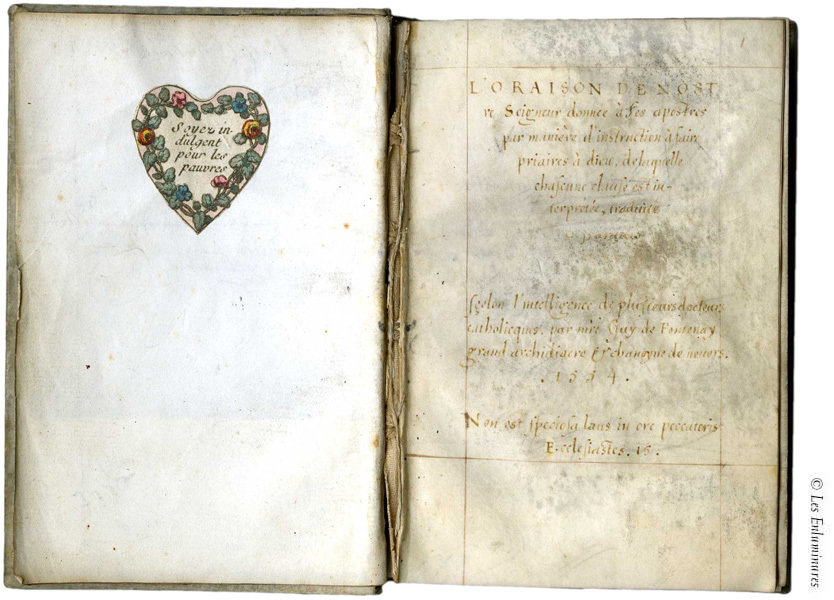 Soyez in-
dulgent
pour les
pauvres
1
L'ORAISON DE NOST
re Seigneur donnee à ses apostres
par maniere d'instruction à faire
priaires à dieu, de laquelle
chascune clause est in-
terpretée, traduite
selon l'intelligence de plusieurs docteurs
catholicques, par mre Guy de Fontenay
grand archidiacre & chanoyne de nevers.
.1554.
Non est speciosa laus in ore peccatoris
Ecclesiastes. 15.
© Les Enluminures